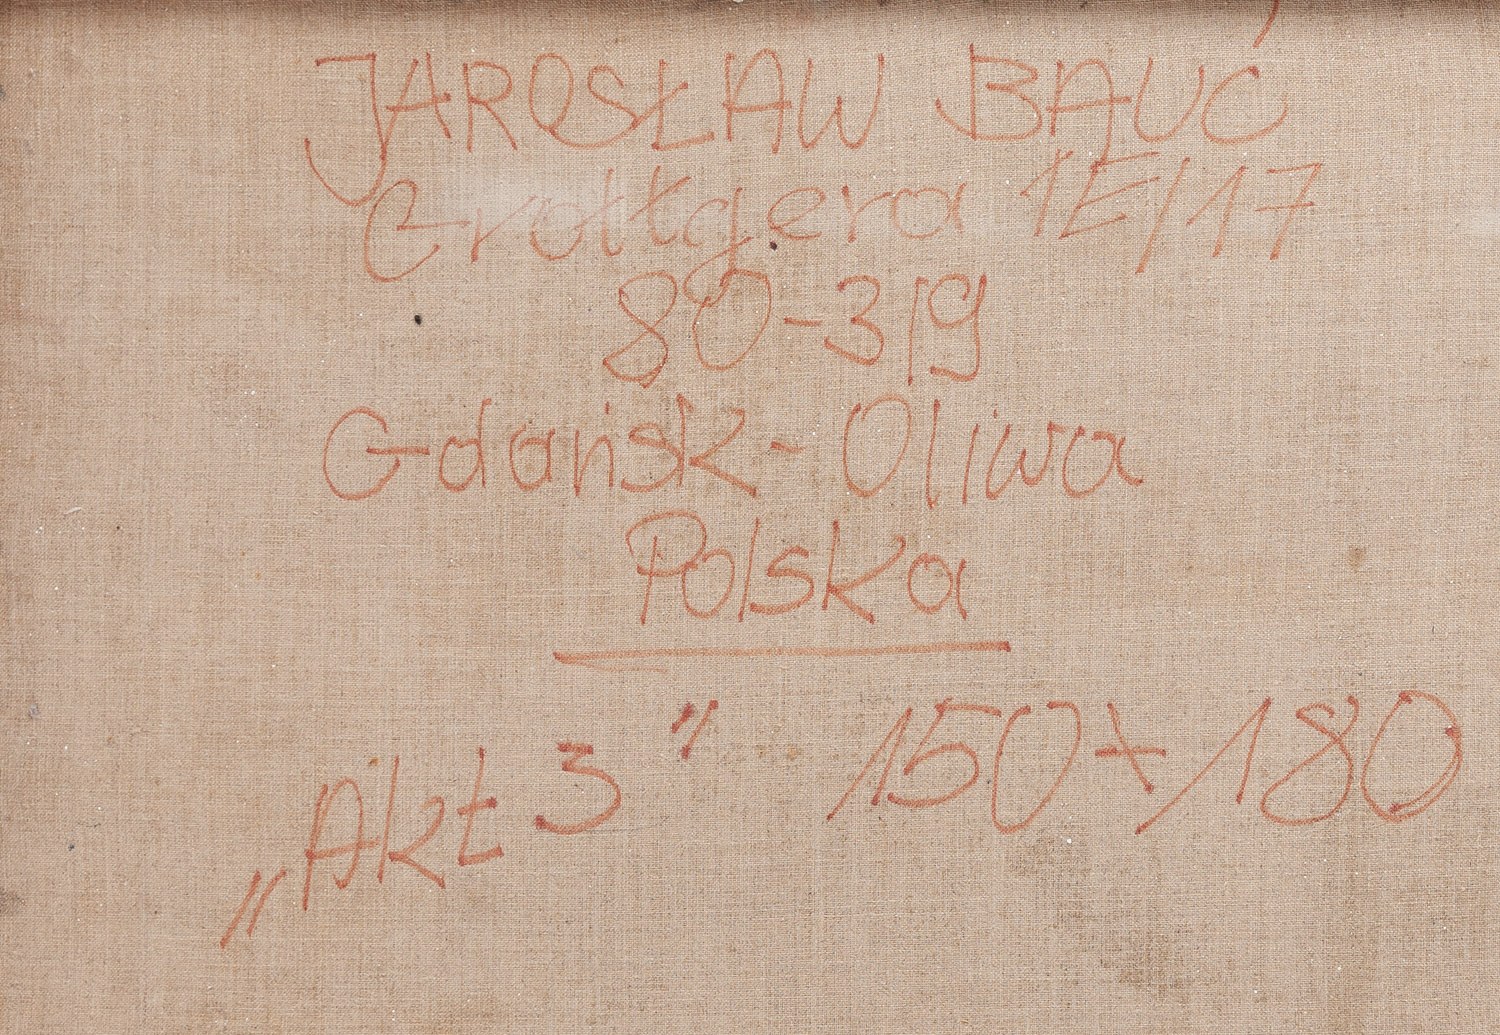 JAROSŁAW BAUĆ
Grottgera 1E/17
80-319
Gdańsk-Oliwa
Polska
„Akt 3" 150x180